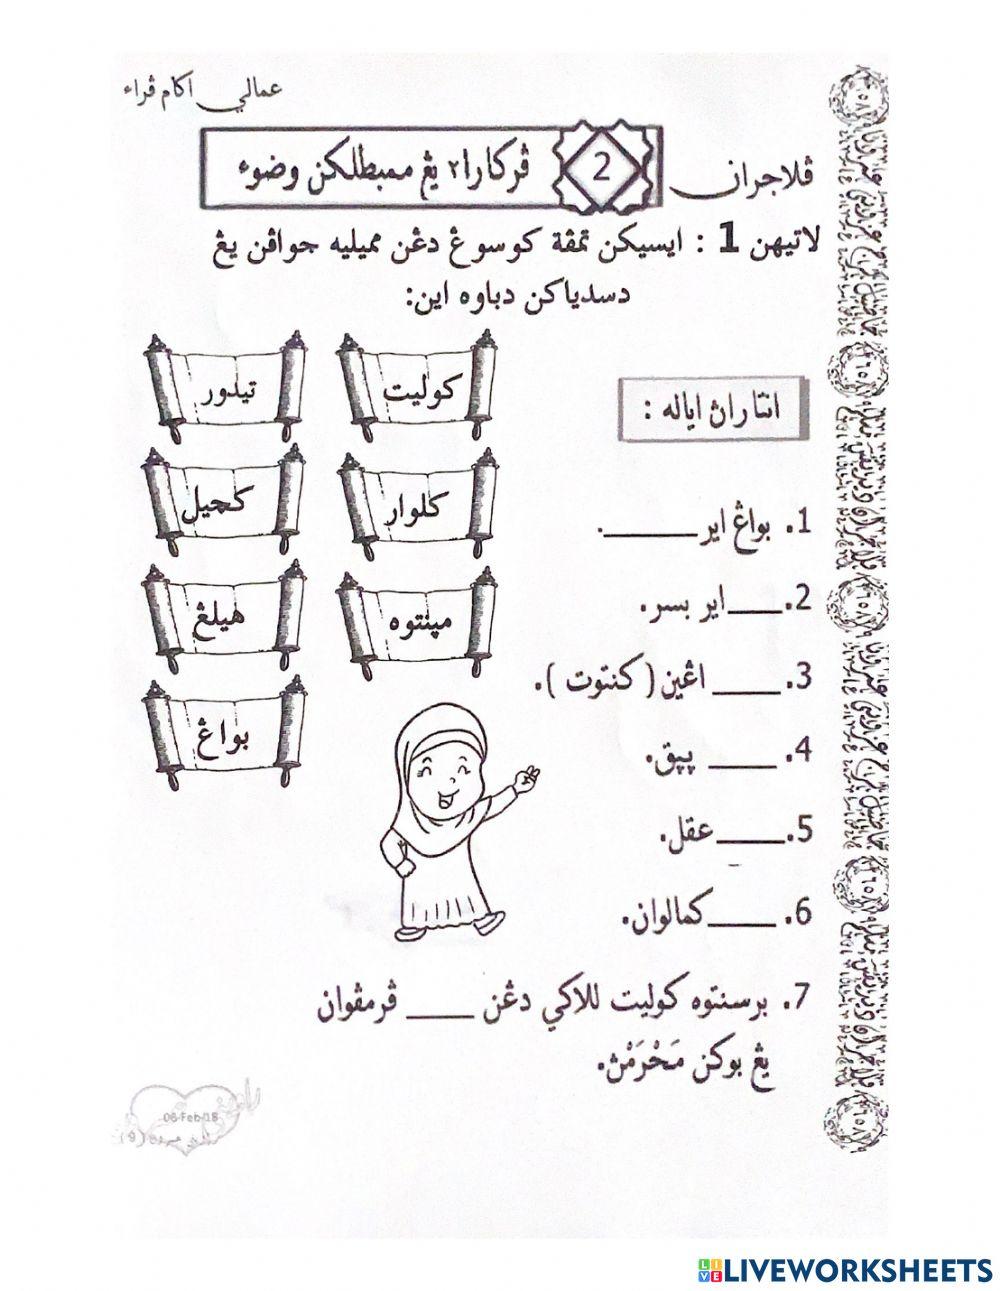 عمالي اݢام ڤراء
ڤلاجران 2 ڤرکارا٢ يڠ ممبطلکن وضوء
لاتيهن 1 : ايسيکن تمڤة کوسوڠ دڠن مميليه جواڤن يڠ
دسدياکن دباوه اين:
کوليت تيدور
کلوار کچيل
مڽنتوه هيلڠ
بواڠ
انتاراڽ اياله :
1. بواڠ اير ______.
2. ____اير بسر.
3. _____ اڠين ( کنتوت ).
4. _____ ڽڽق.
5. _____عقل.
6. _____کمالوان.
7. برسنتوه کوليت للاکي دڠن _____ ڤرمڤوان
يڠ بوکن مَحْرَمْڽ.
06-Feb-18
LIVEWORKSHEETS